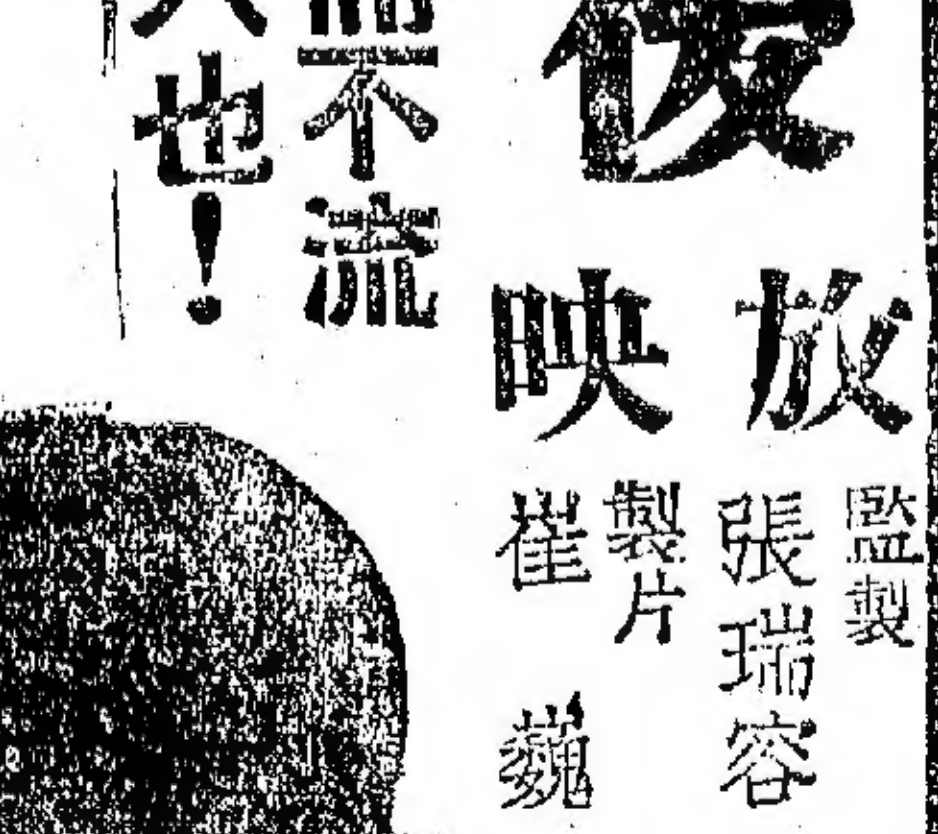 放映
監製
張瑞容
製片
崔巍
不流
也！